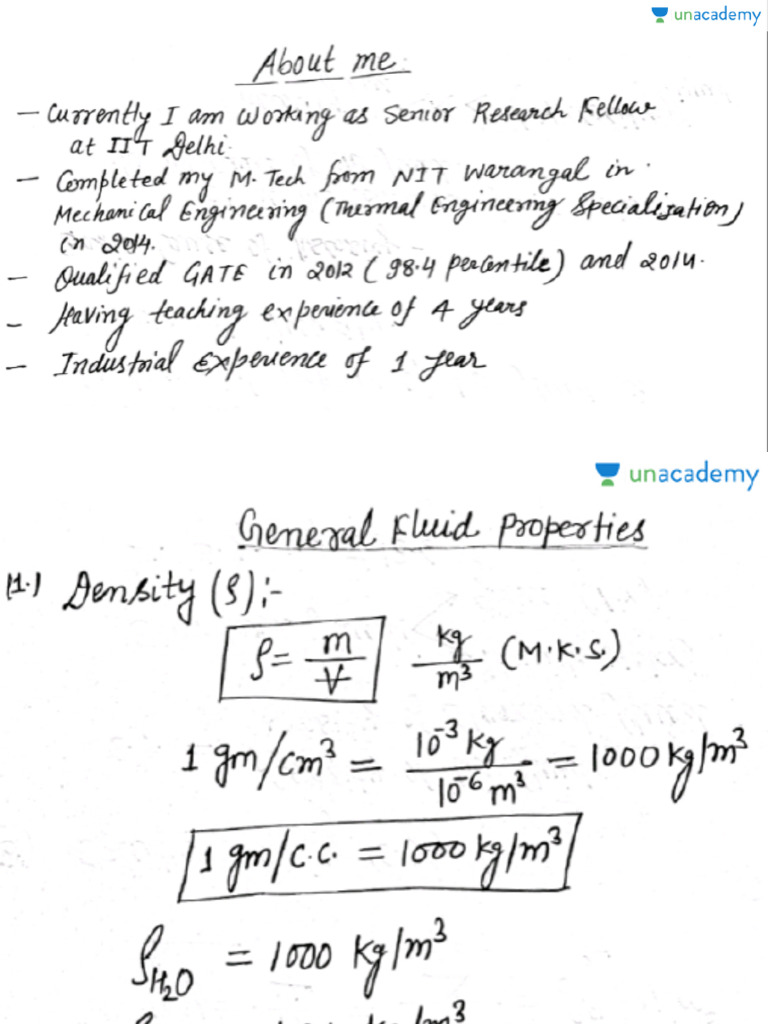 unacademy
About me
– Currently I am working as Senior Research Fellow
at IIT Delhi
– Completed my M.Tech from NIT Warangal in
Mechanical Engineering (Thermal Engineering Specialization)
in 2014.
– Qualified GATE in 2012 (98.4 percentile) and 2014.
– Having teaching experience of 4 years
– Industrial Experience of 1 year
unacademy
General Fluid Properties
(1.) Density (ρ):-
ρ = m/V kg/m³ (M.K.S.)
1 gm/cm³ = 10⁻³ kg/10⁻⁶ m³ = 1000 kg/m³
1 gm/c.c. = 1000 kg/m³
ρH₂O = 1000 kg/m³